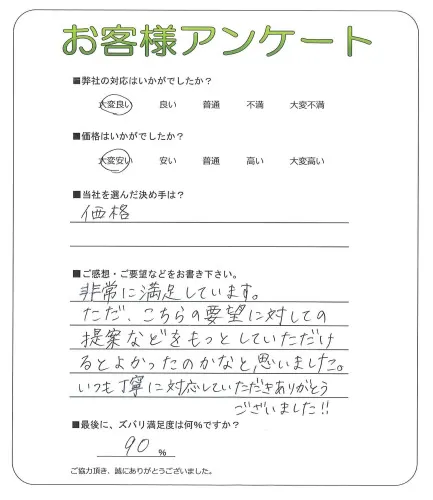 お客様アンケート
■弊社の対応はいかがでしたか?
大変良い 良い 普通 不満 大変不満
■価格はいかがでしたか?
大変安い 安い 普通 高い 大変高い
■当社を選んだ決め手は?
価格
■ご感想・ご要望などをお書き下さい。
非常に満足しています。
ただ、こちらの要望に対しての
提案などをもっとしていただけ
るとよかったのかなと、思いました。
いつも丁寧に対応していただきありがとう
ございました!!
■最後に、ズバリ満足度は何%ですか?
90 %
ご協力頂き、誠にありがとうございました。